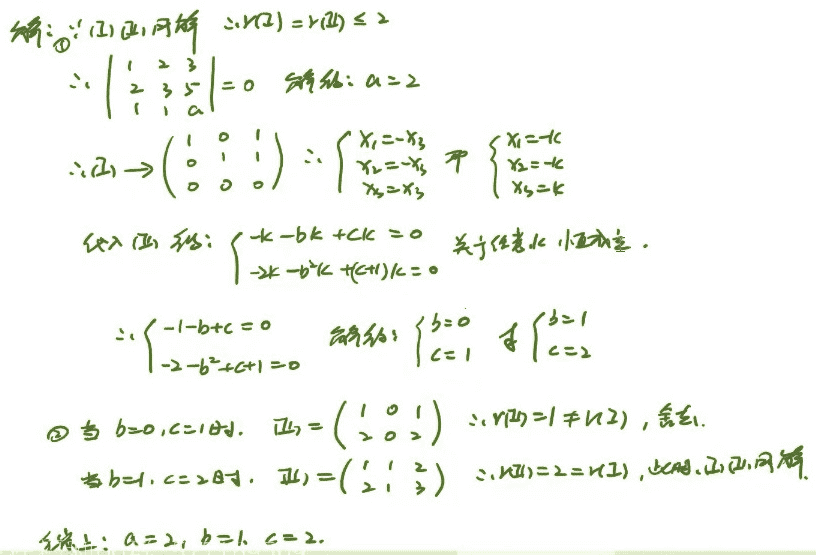 解:①∵(I)(II)同解 ∴r(I)=r(II)≤2
∴ | 1 2 3 ; 2 3 5 ; 1 1 a | =0 解得: a=2
∴(I)→ ( 1 0 1 ; 0 1 1 ; 0 0 0 ) ∴ { x₁=-x₃ ; x₂=-x₃ ; x₃=x₃ 即 { x₁=-k ; x₂=-k ; x₃=k
代入(II)得: { -k-bk+ck=0 ; -2k-b²k+(c+1)k=0 关于任意k恒成立.
∴ { -1-b+c=0 ; -2-b²+c+1=0 解得: { b=0 ; c=1 或 { b=1 ; c=2
② 当 b=0,c=1时. (II)= ( 1 0 1 ; 2 0 2 ) ∴r(II)=1≠r(I), 舍去.
当b=1, c=2时. (II)= ( 1 1 2 ; 2 1 3 ) ∴r(II)=2=r(I), 此时,(I)(II)同解.
综上: a=2, b=1, c=2.